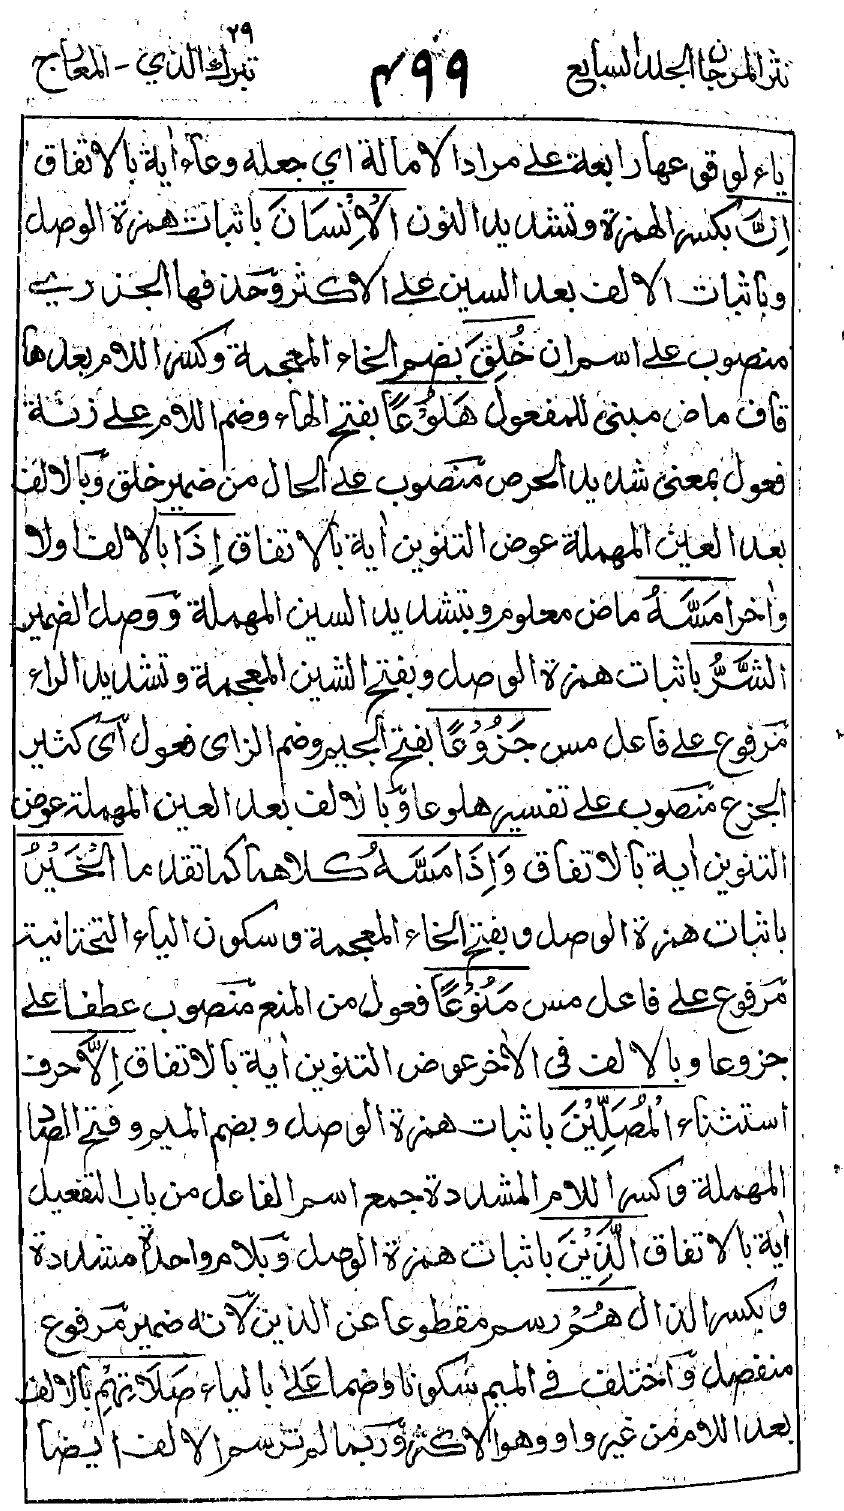 نثر المرجان الجلد السابع
۴۹۹
۲۹
تبرك الذي - المعارج
ياء لوقوعها رابعة على مراد الامالة اي جعله وعاء اٰية بالاتفاق
اِنَّ بكسر الهمزة وتشديد النون الْاِنْسَانَ باثبات همزة الوصل
وباثبات الالف بعد السين على الاكثر وحذفها الجزري
منصوب على اسم ان خُلِقَ بضم الخاء المعجمة وكسر اللام بعدها
قاف ماض مبنى للمفعول هَلُوْعًا بفتح الهاء وضم اللام على زنة
فعول بمعنى شديد الحرص منصوب على الحال من ضمير خلق وبالالف
بعد العين المهملة عوض التنوين اٰية بالاتفاق اِذَا بالالف اولا
واٰخرا مَسَّهُ ماض معلوم وبتشديد السين المهملة ووصل الضمير
الشَّرُّ باثبات همزة الوصل وبفتح الشين المعجمة وتشديد الراء
مرفوع على فاعل مس جَزُوْعًا بفتح الجيم وضم الزاى فعول اى كثير
الجزع منصوب على تفسير هلوعا وبالالف بعد العين المهملة عوض
التنوين اٰية بالاتفاق وَاِذَا مَسَّهُ كلاهما كما تقدما الْخَيْرُ
باثبات همزة الوصل وبفتح الخاء المعجمة وسكون الياء التحتانية
مرفوع على فاعل مس مَنُوْعًا فعول من المنع منصوب عطفا على
جزوعا وبالالف فى الاٰخر عوض التنوين اٰية بالاتفاق اِلَّا حرف
استثناء الْمُصَلِّيْنَ باثبات همزة الوصل وبضم الميم وفتح الصاد
المهملة وكسر اللام المشددة جمع اسم الفاعل من باب التفعيل
اٰية بالاتفاق الَّذِيْنَ باثبات همزة الوصل وبلام واحدة مشددة
وبكسر الذال هُمْ رسم مقطوعا عن الذين لانه ضمير مرفوع
منفصل واختلف فى الميم سكونا وضما عَلٰى بالياء صَلَاتِهِمْ بالالف
بعد اللام من غير واو وهو الاكثر وربما لم ترسم الالف ايضا